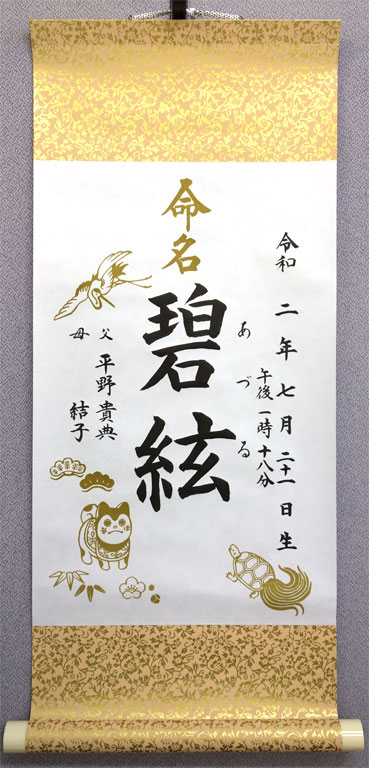 令和二年七月二十一日生
午後一時十八分
命名
碧絃
あづる
父 平野貴典
母 結子